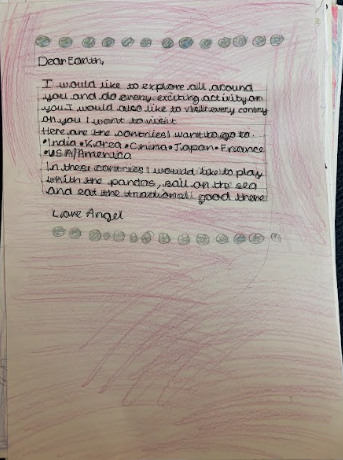 Dear Earth,
I would like to explore all around
you and do every exciting activity on
you. I would also like to visit every contry
on you I want to visit
Here are the contries I want to go to.
•India •Korea •China •Japan •France
•USA/America
In these contries I would like to play
with the pandas, sail on the sea
and eat the traditional good there
Love Angel